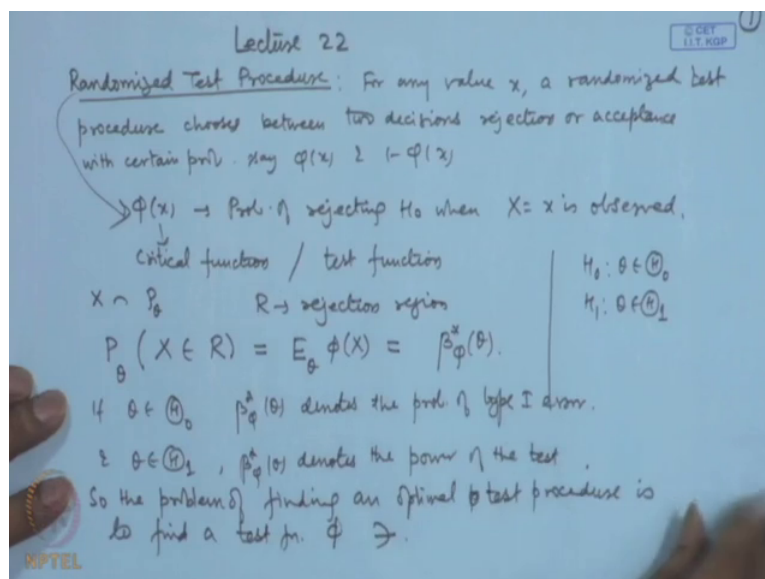 Lecture 22
© CET
I.I.T. KGP
1
Randomized Test Procedure : For any value x, a randomized test
procedure chooses between two decisions rejection or acceptance
with certain prob. say φ(x) & 1-φ(x)
φ(x) → Prob. of rejecting H₀ when X = x is observed.
Critical function / test function
H₀ : θ ∈ Ⓗ₀
X ~ P_θ R → rejection region
H₁ : θ ∈ Ⓗ₁
P_θ (X ∈ R) = E_θ φ(X) = β*_φ(θ).
If θ ∈ Ⓗ₀ β*_φ(θ) denotes the prob. of type I error.
& θ ∈ Ⓗ₁, β*_φ(θ) denotes the power of the test.
So the problem of finding an optimal test procedure is
to find a test fn. φ ∋.
NPTEL